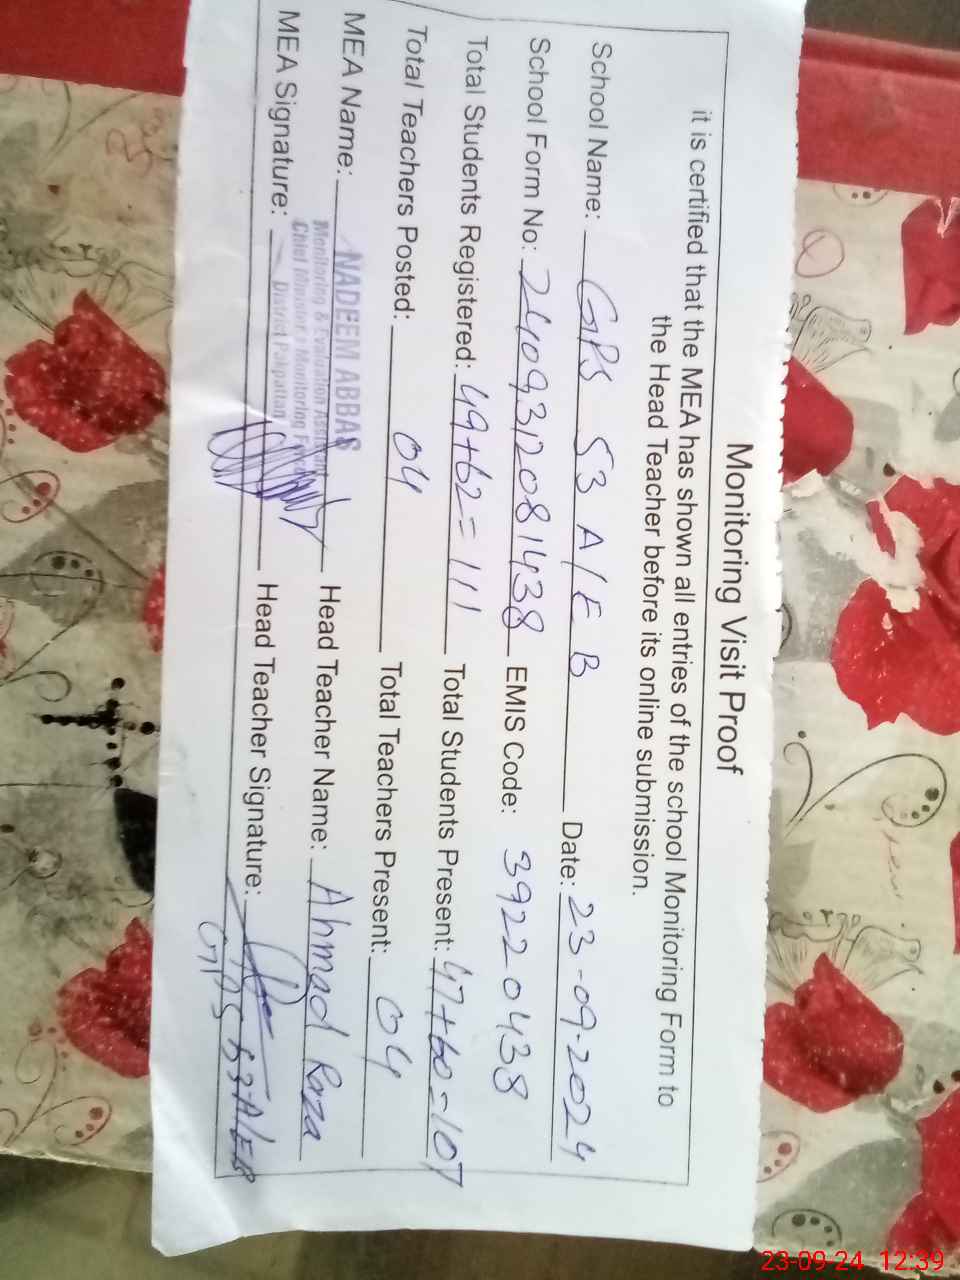 Monitoring Visit Proof
it is certified that the MEA has shown all entries of the school Monitoring Form to
the Head Teacher before its online submission.
School Name: GPS 53 A/E B Date: 23-09-2024
School Form No: 2409312081438 EMIS Code: 39220438
Total Students Registered: 49+62=111 Total Students Present: 47+60=107
Total Teachers Posted: 04 Total Teachers Present: 04
MEA Name: NADEEM ABBAS Head Teacher Name: Ahmad Raza
Monitoring & Evaluation Assistant
Chief Minister's Monitoring Force
District Pakpattan
MEA Signature: Head Teacher Signature:
GPS 53-A/EB
23-09-24 12:39